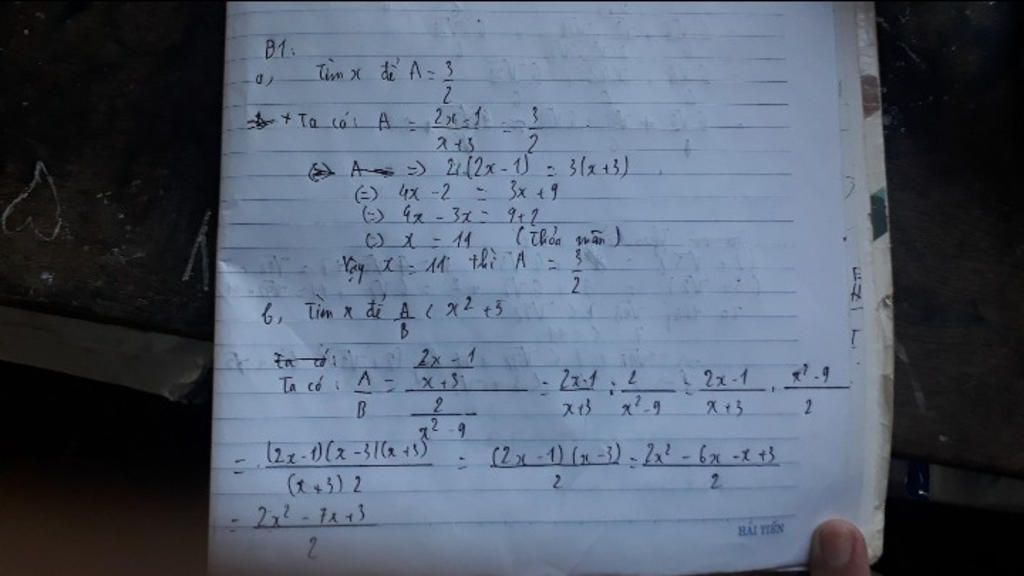 B1:
a, Tìm x để A = 3/2
+ Ta có: A = 2x-1/x+3 = 3/2
=) 2(2x-1) = 3(x+3)
(=) 4x - 2 = 3x + 9
(=) 4x - 3x = 9+2
(=) x = 11 (Thỏa mãn)
Vậy x = 11 thì A = 3/2
b, Tìm x để A/B < x² + 3
Ta có:
Ta có: A/B = (2x-1/x+3)/(2/x²-9) = 2x-1/x+3 : 2/x²-9 = 2x-1/x+3 . x²-9/2
= (2x-1)(x-3)(x+3)/(x+3)2 = (2x-1)(x-3)/2 = 2x² - 6x - x + 3/2
= 2x² - 7x + 3/2
HẢI TIẾN